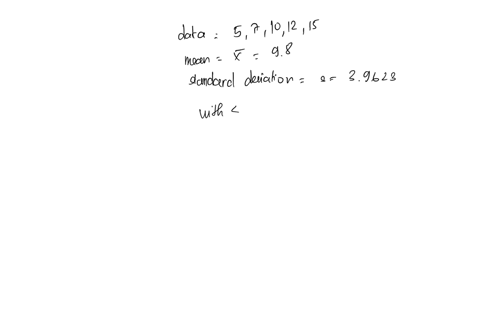 data = 5, 7, 10, 12, 15
mean = x̄ = 9.8
standard deviation = s = 3.9623
with <